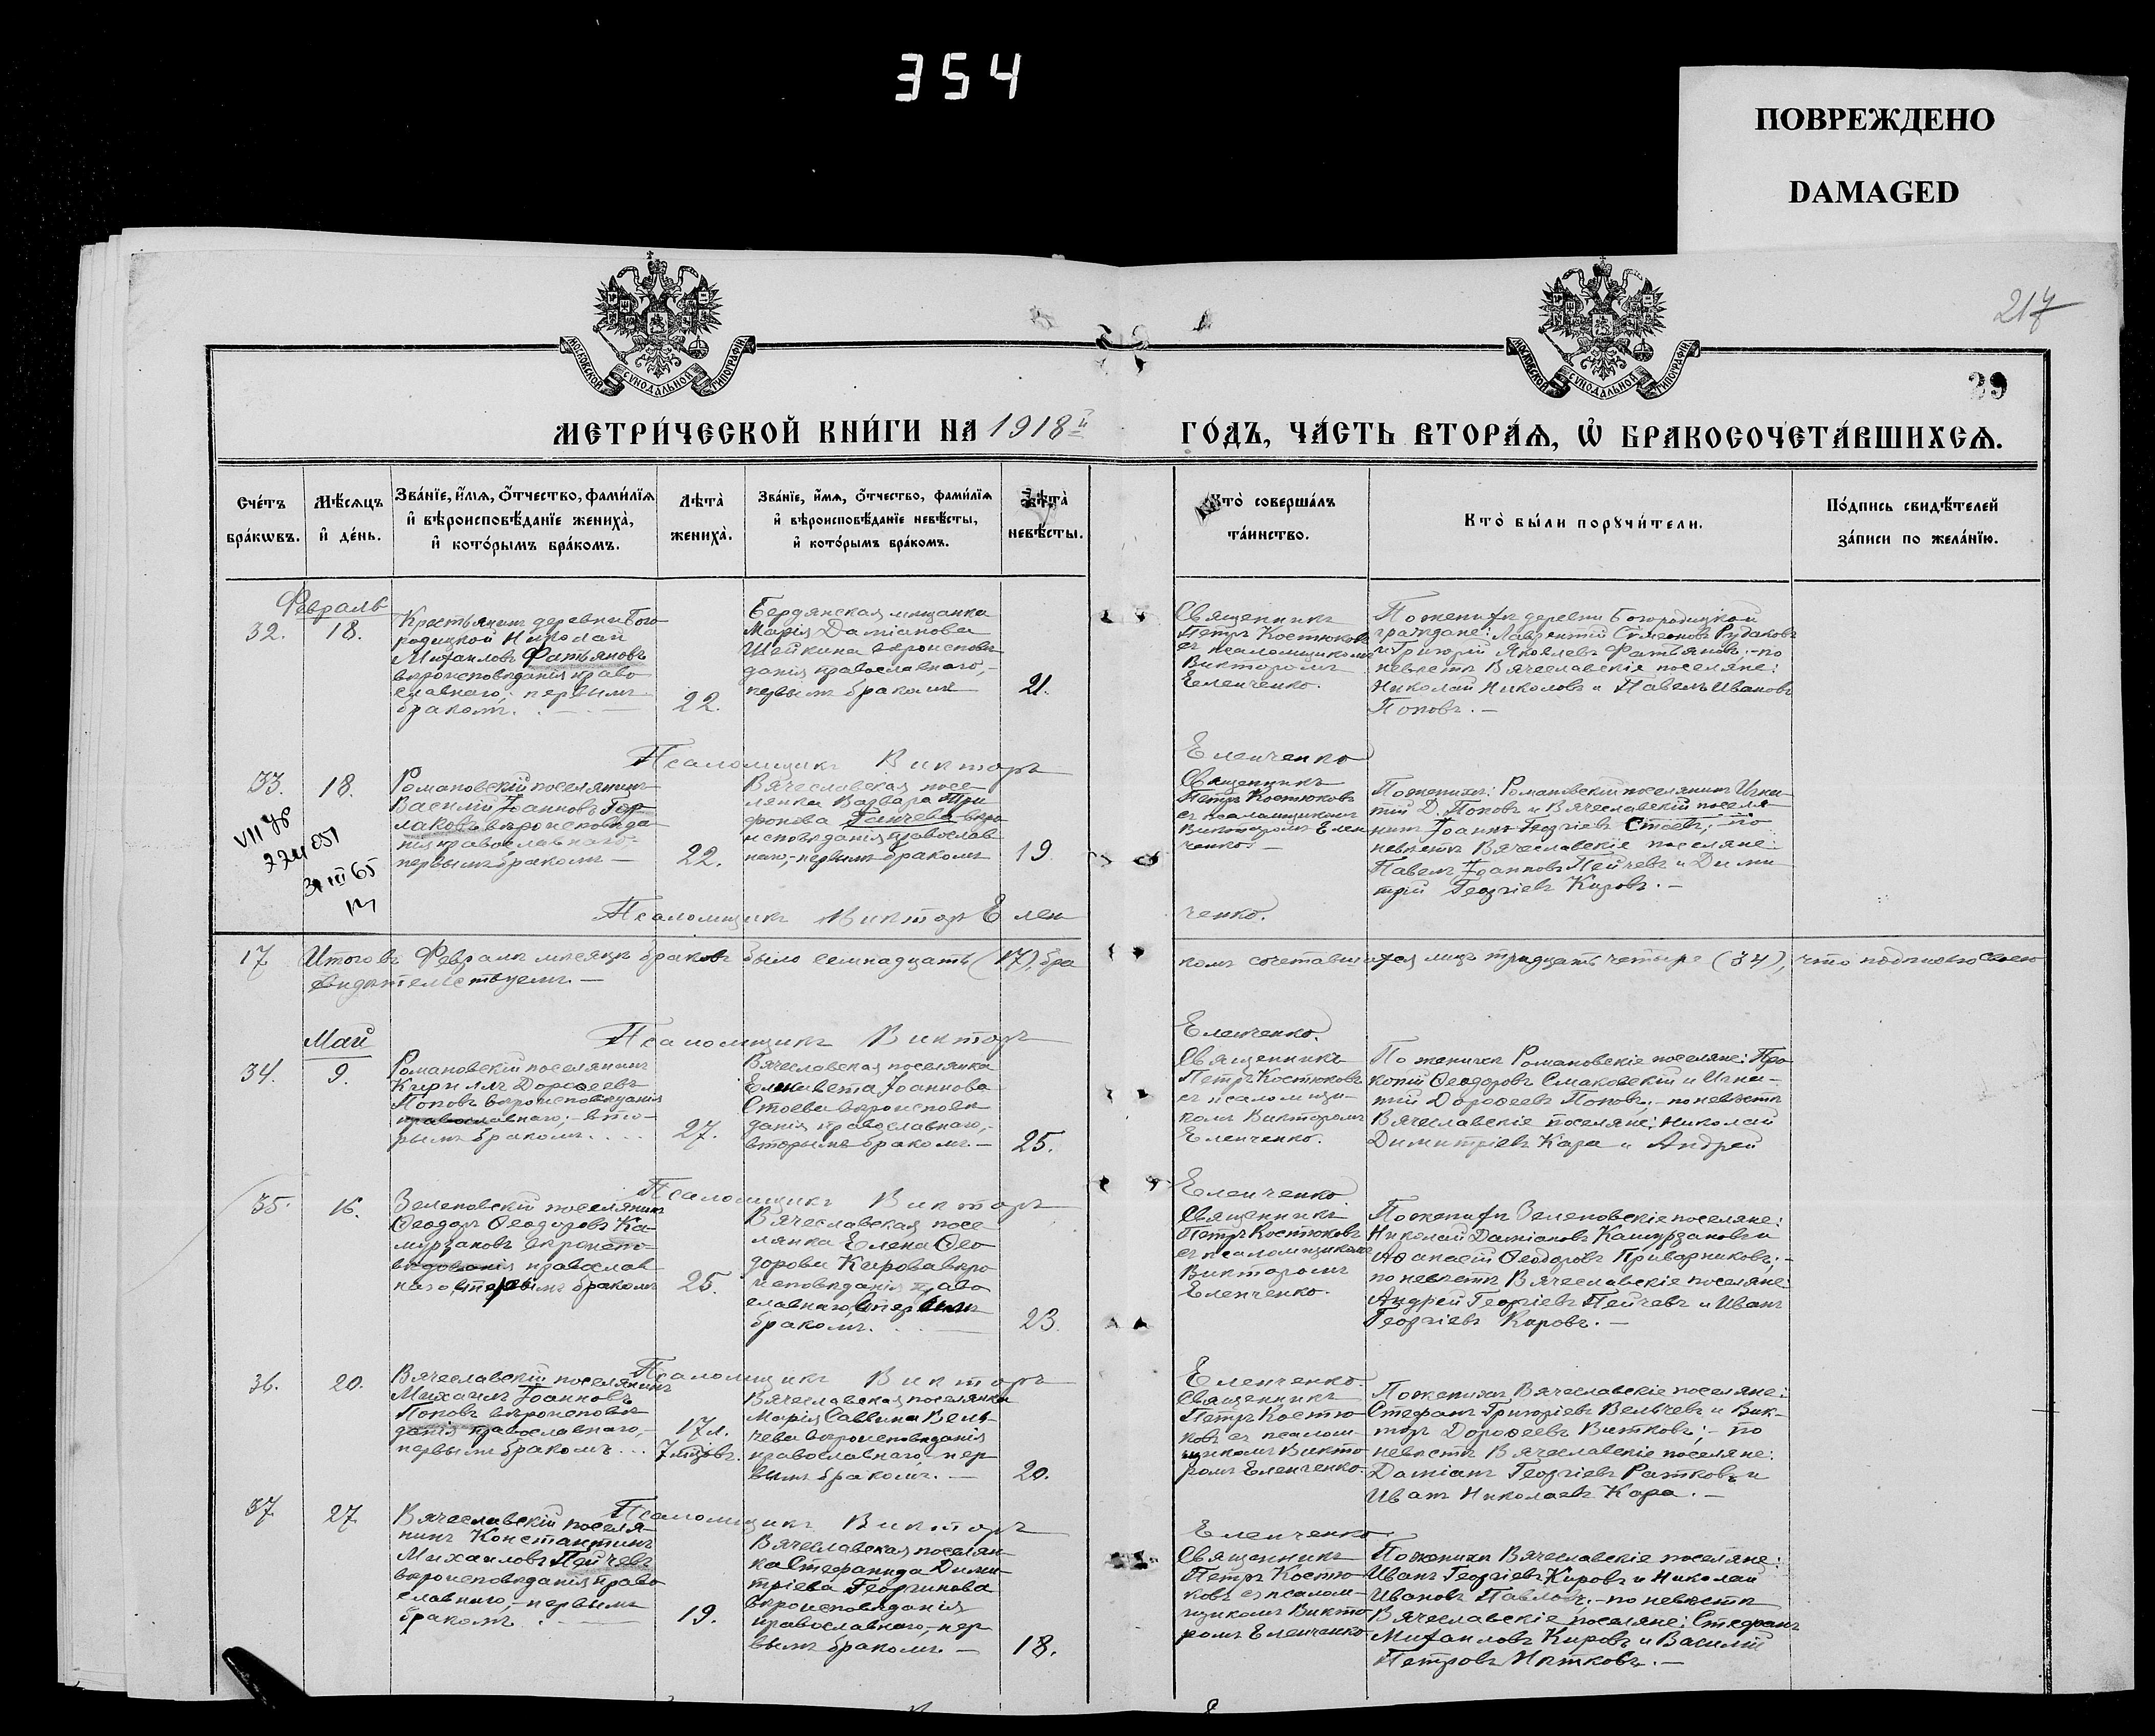 354
ПОВРЕЖДЕНО
DAMAGED
217
39
МОСКОВСКОЙ СѴНОДАЛЬНОЙ ТИПОГРАФІИ
МОСКОВСКОЙ СѴНОДАЛЬНОЙ ТИПОГРАФІИ
МЕТРИ́ЧЕСКОЙ КНИ́ГИ НА 1918й
ГО́ДЪ, ЧА́СТЬ ВТОРА́Ѧ, Ѡ҆ БРАКОСОЧЕТА́ВШИХСѦ.
Сче́тъ
бра́кωвъ.
Мѣ́сѧцъ
и҆ де́нь.
Зва́нїе, и҆́мѧ, ѻ҆́тчество, фами́лїѧ
и҆ вѣроисповѣ́данїе жениха̀,
и҆ кото́рымъ бра́комъ.
Лѣта̀
жениха̀.
Зва́нїе, и҆́мѧ, ѻ҆́тчество, фами́лїѧ
и҆ вѣроисповѣ́данїе невѣ́сты,
и҆ кото́рымъ бра́комъ.
Лѣта̀
невѣ́сты.
Кто̀ соверша́лъ
та́инство.
Кто̀ бы́ли порꙋчи́тели.
По́дпись свидѣ́телей
за́писи по жела́нїю.
Февраль
32.
18.
Крестьянинъ деревни Бого
родицкой Николай
Михаиловъ Фатьяновъ
вѣроисповѣданія право
славнаго, первымъ
бракомъ.
22.
Бердянская мѣщанка
Марія Даміанова
Шейкина вѣроисповѣ
данія православнаго,
первымъ бракомъ
21.
Священникъ
Петръ Костюковъ
съ псаломщикомъ
Викторомъ
Еленченко.
По женихѣ деревни Богородицкой
граждане: Лаврентій Сѵмеоновъ Рудаковъ
и Григорій Яковлевъ Фатьяновъ; по
невѣстѣ Вячеславскіе поселяне:
Николай Николовъ и Павелъ Ивановъ
Поповъ.
Псаломщикъ Викторъ Еленченко
33.
18.
Романовскій поселянинъ
Василій Іоанновъ Гор
лаковъ вѣроисповѣда
нія православнаго
первымъ бракомъ
22.
Вячеславская посе
лянка Варвара Три
фонова Генчева вѣро
исповѣданія православ
наго, первымъ бракомъ
19.
Священникъ
Петръ Костюковъ
съ псаломщикомъ
Викторомъ Елен
ченко.
По женихѣ: Романовскій поселянинъ Игна
тій Д. Поповъ и Вячеславскій поселя
нинъ Іоаннъ Георгіевъ Стоевъ; по
невѣстѣ Вячеславскіе поселяне:
Павелъ Іоанновъ Пейчевъ и Дими
трій Георгіевъ Кировъ.
31 III 65
Псаломщикъ Викторъ Еленченко.
17 Итого въ Февралѣ мѣсяцѣ браковъ было семнадцать (17), бракомъ сочетавшихся лицъ тридцать четыре (34), что подписью своею
свидѣтельствуемъ.
Псаломщикъ Викторъ Еленченко.
Май
34.
9.
Романовскій поселянинъ
Кириллъ Дороѳеевъ
Поповъ вѣроисповѣданія
православнаго; вто
рымъ бракомъ.
27.
Вячеславская поселянка
Елисавета Іоаннова
Стоева вѣроисповѣ
данія православнаго,
вторымъ бракомъ.
25.
Священникъ
Петръ Костюковъ
съ псаломщи
комъ Викторомъ
Еленченко.
По женихѣ Романовскіе поселяне: Про
копій Ѳеодоровъ Смаковскій и Игна
тій Дороѳеевъ Поповъ; по невѣстѣ
Вячеславскіе поселяне: Николай
Димитріевъ Кара и Андрей
Псаломщикъ Викторъ Еленченко
35.
16.
Зеленовскій поселянинъ
Ѳеодоръ Ѳеодоровъ Ка
мурзаковъ вѣроиспо
вѣданія православ
наго, первымъ бракомъ
25.
Вячеславская посе
лянка Елена Ѳео
дорова Кирова вѣро
исповѣданія право
славнаго, первымъ
бракомъ.
23.
Священникъ
Петръ Костюковъ
съ псаломщикомъ
Викторомъ
Еленченко.
По женихѣ Зеленовскіе поселяне:
Николай Даміановъ Камурзаковъ и
Аѳанасій Ѳеодоровъ Приварниковъ;
по невѣстѣ Вячеславскіе поселяне
Андрей Георгіевъ Пейчевъ и Иванъ
Георгіевъ Кировъ.
Псаломщикъ Викторъ Еленченко.
36.
20.
Вячеславскій поселянинъ
Михаилъ Іоанновъ
Поповъ вѣроисповѣ
данія православнаго,
первымъ бракомъ
17 л.
7 мцовъ.
Вячеславская поселянка
Марія Саввина Вель
чева вѣроисповѣданія
православнаго, пер
вымъ бракомъ.
20.
Священникъ
Петръ Костю
ковъ съ псалом
щикомъ Викто
ромъ Еленченко.
По женихѣ Вячеславскіе поселяне:
Стефанъ Григоріевъ Вельчевъ и Вик
торъ Дороѳеевъ Витковъ; по
невѣстѣ Вячеславскіе поселяне:
Даміанъ Георгіевъ Ратковъ и
Иванъ Николаевъ Кара.
Псаломщикъ Викторъ Еленченко
37.
27.
Вячеславскій поселя
нинъ Константинъ
Михаиловъ Пейчевъ
вѣроисповѣданія право
славнаго, первымъ
бракомъ.
19.
Вячеславская поселян
ка Стефанида Дими
тріева Георгинова
вѣроисповѣданія
православнаго, пер
вымъ бракомъ
18.
Священникъ
Петръ Костю
ковъ съ псалом
щикомъ Викто
ромъ Еленченко.
По женихѣ Вячеславскіе поселяне:
Иванъ Георгіевъ Кировъ и Николай
Ивановъ Павловъ; по невѣстѣ
Вячеславскіе поселяне: Стефанъ
Михаиловъ Кировъ и Василій
Петровъ